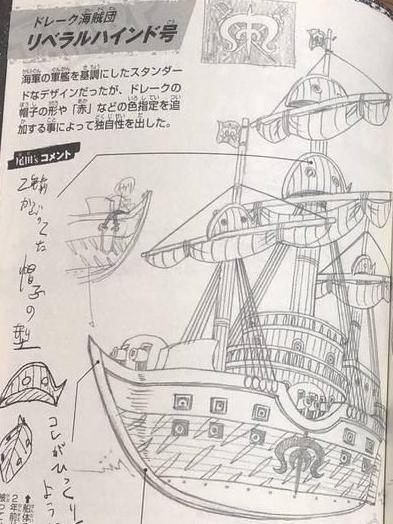 ドレーク海賊団
リベラルハインド号
海軍の軍艦を基調にしたスタンダー
ドなデザインだったが、ドレークの
帽子の形や「赤」などの色指定を追
加する事によって独自性を出した。
尾田'sコメント
かぶってた
帽子の型
コレがひっくり
ように
↑船体
2年前